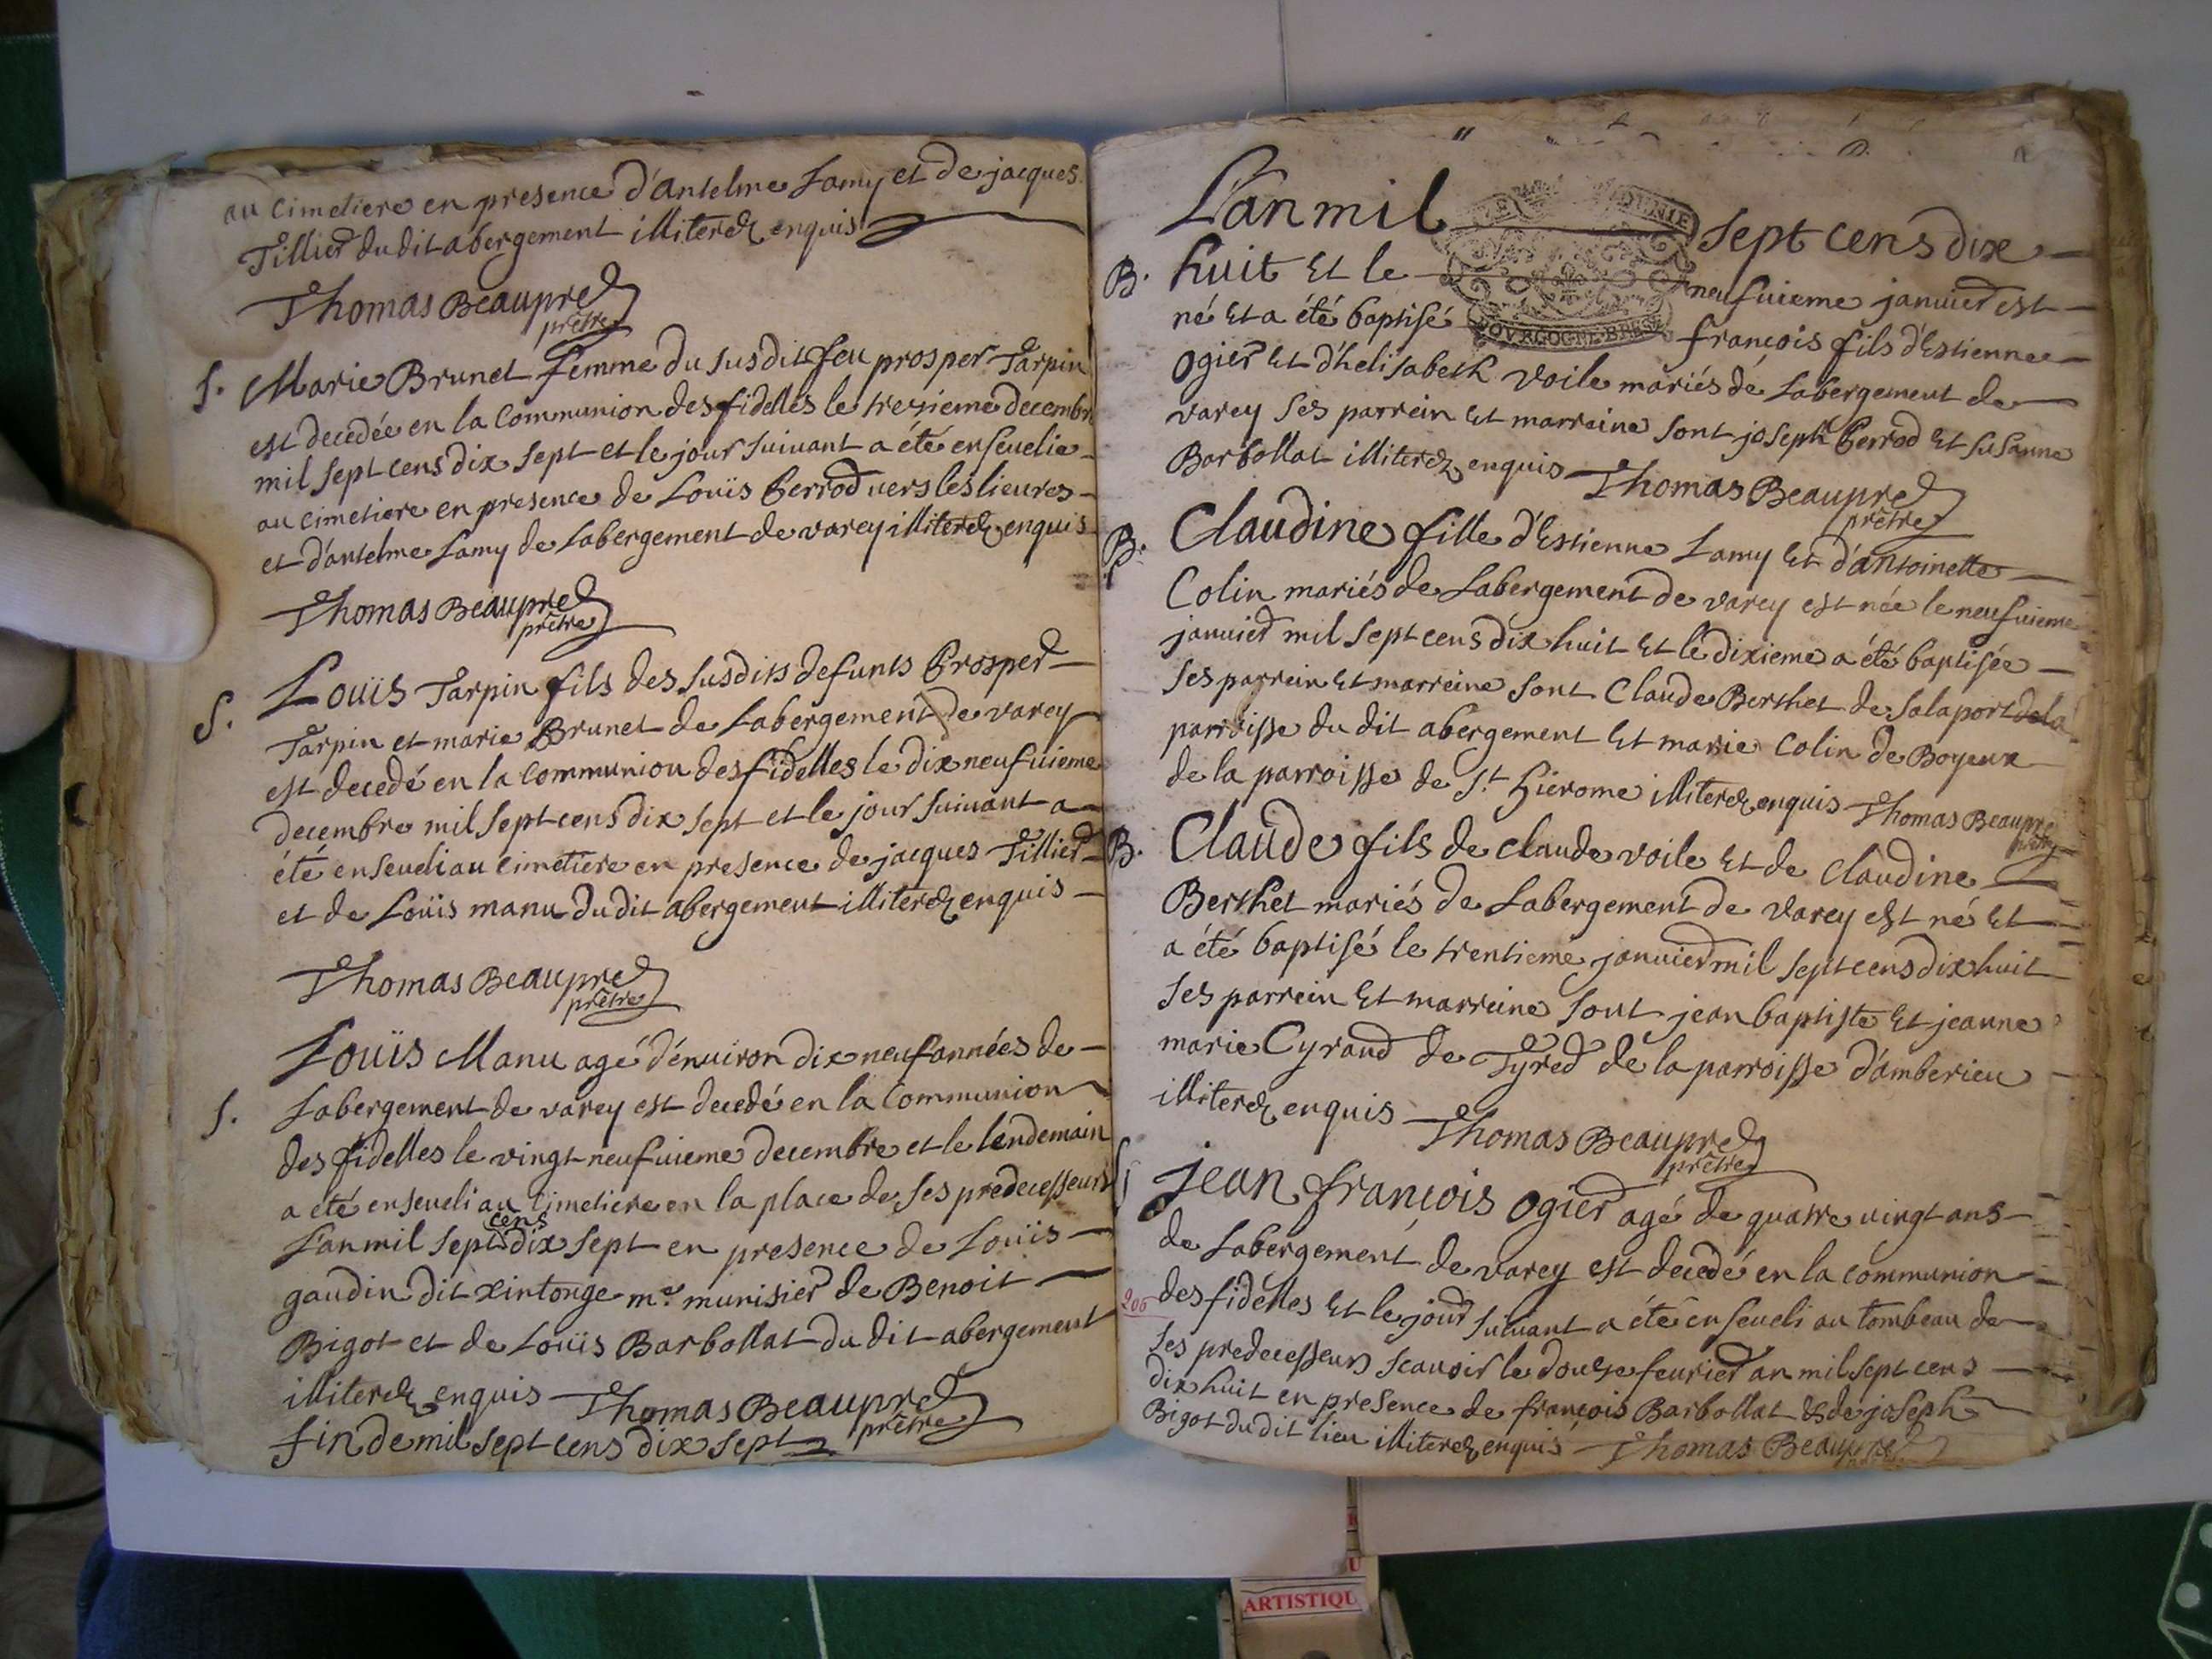 au cimetiere en presence d'antelme Lamy et de jacques
Tillier du dit abergement illiterez enquis
Thomas Beaupred
prêtre
S. Marie Brunet femme du susdit feu prosper Tarpin
est decedée en la Communion des fidelles le trezieme decembre
mil sept cens dix sept et le jour suivant a été ensevelie
au cimetiere en presence de Louïs Perrod vers les lieures
et d'antelme Lamy de Labergement de varey illiterez enquis
Thomas Beaupred
prêtre
S. Louïs Tarpin fils des susdits defunts Prosper
Tarpin et marie Brunet de Labergement de varey
est decedé en la Communion des fidelles le dix neufuieme
decembre mil sept cens dix sept et le jour suivant a
été enseveli au cimetiere en presence de jacques Tillier
et de Louïs manu du dit abergement illiterez enquis
Thomas Beaupred
prêtre
Louïs Manu agé d'environ dix neuf années de
S. Labergement de varey est decedé en la Communion
des fidelles le vingt neufuieme decembre et le lendemain
a eté enseveli au Cimetiere en la place de ses predecesseurs
Lan mil sept cens dix sept en presence de Louïs
gaudin dit xintonge me. munisier de Benoit
Bigot et de Louïs Barbollat du dit abergement
illiterez enquis Thomas Beaupred
prêtre
fin de mil sept cens dix sept
L'an mil sept cens dix
B. huit et le neufuieme januier est
BOVRGOGNE BRESSE
né et a été baptisé françois fils d'Estienne
Ogier et d'helisabeth voile mariés de Labergement de
varey ses parrein et marreine sont joseph Perrod et susanne
Barbollat illiterez enquis Thomas Beaupred
prêtre
B. Claudine fille d'Estienne Lamy et d'antoinette
Colin mariés de Labergement de varey est née le neufuieme
januier mil sept cens dix huit et le dixieme a été baptisée
ses parrein et marreine sont Claude Berthet de Salaport de la
parroisse du dit abergement et marie Colin de Boyeux
de la parroisse de St. Hiérome illiterez enquis Thomas Beaupre
prêtre
B. Claude fils de claude voile et de claudine
Berthet mariés de Labergement de varey est né et
a été baptisé le trentieme januier mil sept cens dix huit
ses parrein et marreine sont jean baptiste et jeanne
marie Cyraud de Tyred de la parroisse d'amberieu
illiterez enquis Thomas Beaupred
prêtre
S jean françois Ogier agé de quatre vingt ans
de Labergement de varey est decedé en la communion
206 des fidelles et le jour suivant a été enseveli au tombeau de
ses predecesseurs scavoir le douze feurier an mil sept cens
dix huit en presence de françois Barbollat & de joseph
Bigot du dit lieu illiterez enquis Thomas Beaupred
ARTISTIQU